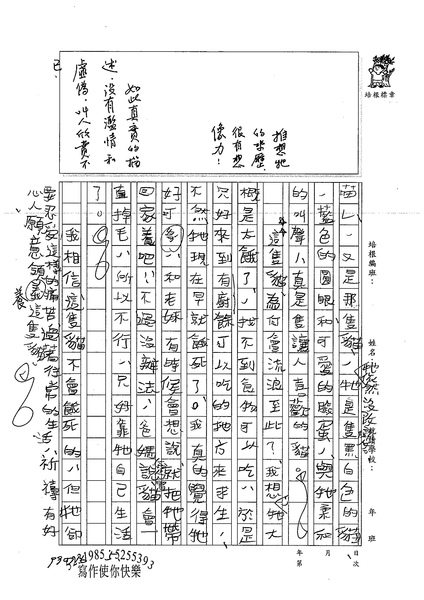 培根標章
培根編班：
姓名：
就讀學校：
年 班
月 日
年 第 次
苗く，又是那隻貓！牠是隻黑白色的貓
，藍色的圓眼和可愛的臉蛋，與牠柔和
的叫聲，真是隻讓人喜歡的貓。
這隻貓為何會流浪至此？我想牠大
概是太餓了，找不到食物可以吃，於是
只好來到有廚餘可以吃的地方來求生，
不然牠現在早就餓死了。我真的覺得牠
好可
，和老妹有時候會想說就把牠帶
回家養吧！不過沒辦法，爸媽說貓會一
直掉毛，所以不行，只好靠牠自己生活
了。
我相信這隻貓不會餓死的，但牠卻
要忍受這樣的痛苦過著往常的生活，祈禱有好
心人願意領養這隻貓
推想牠
的來歷，
很有想
像力！
如此真實的描
述，沒有濫情和
虛偽，叫人欣賞不
已。
寫作使你快樂